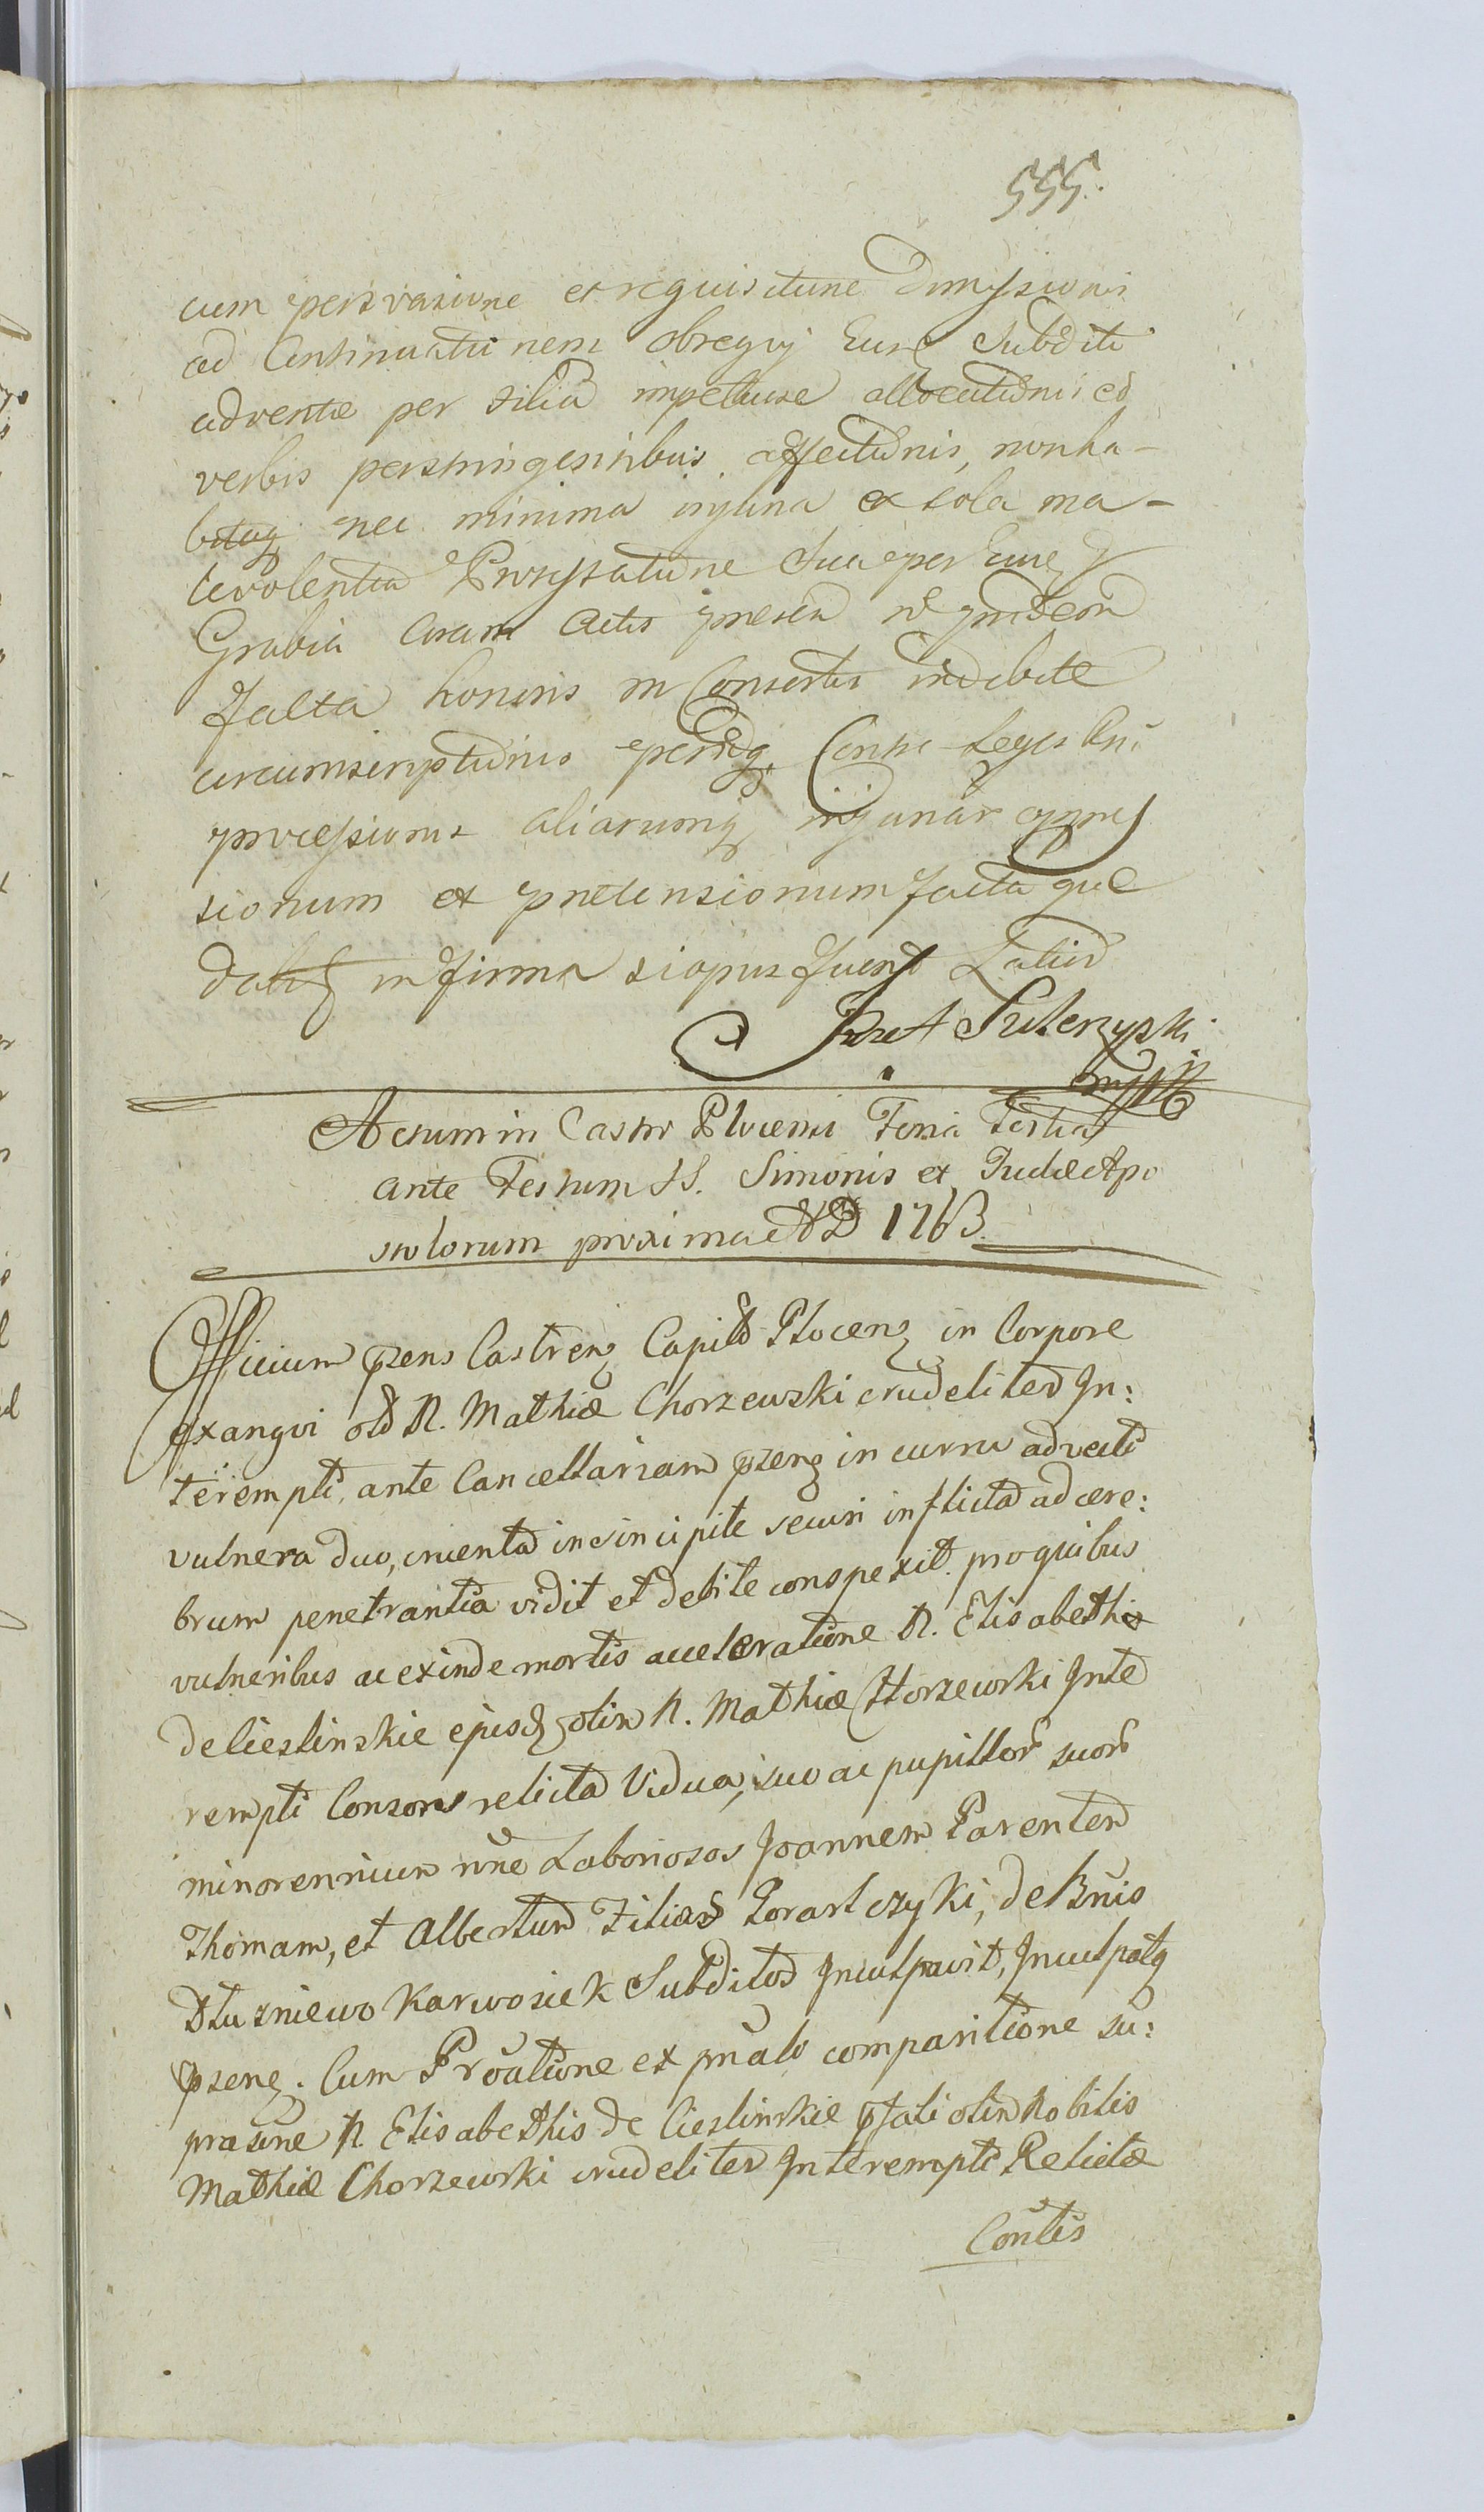 555.
cum persvasione et requisitione Dimissionis
ad Continuationem obsequij Eius Subditi
advente per Filiū impetuose allocutionis ed
verbis perstringentibus affectionis, non ha-
bitaq nec minima injuria ex sola ma-
levolentia Protestatione sua per Eund
Grabia coram Actis presen
facta honoris in Consortis indebite
circumscriptionis Contr Leges
processionis aliarumq injuriar oppres
sionum et pretensionum facta que
in firma si opus fuerit Latius
Jozef Sulerzyski
mpp
Actum in Castro Plocensi Feria Tertia
ante Festum SS. Simonis et Judæ Apo
stolorum proxima A D 1763.
Officium pzens Castren Capitł Plocen in Corpore
exangvi olđ N. Mathiæ Chorzewski crudeliter In:
terempti, ante Cancellariam pzens in curru advecti
vulnera duo, cruenta in sincipite securi inflicta ad cere:
brum penetrantia vidit et debite conspexit. pro quibus
vulneribus ac exinde mortis acceleratione N. Elisabetha
de Cieslinskie ejusd olim N. Mathiæ Horzewski Inte
rempti Consors relicta Vidua, suo ac pupillor suor
minorennium nne Laboriosos Joannem Parentem
Thomam, et Albertum Filios Porarlczyki, de Bnis
Dłuzniewo Karwosiek Subditos Inculpavit, Inculpatq
pzens. Cum Proatione ex pnali comparitione su:
prascne N. Elisabethis de Cieslinskie pfati olim Nobilis
Mathiæ Chorzewski crudeliter Interempti Relictæ
Contis